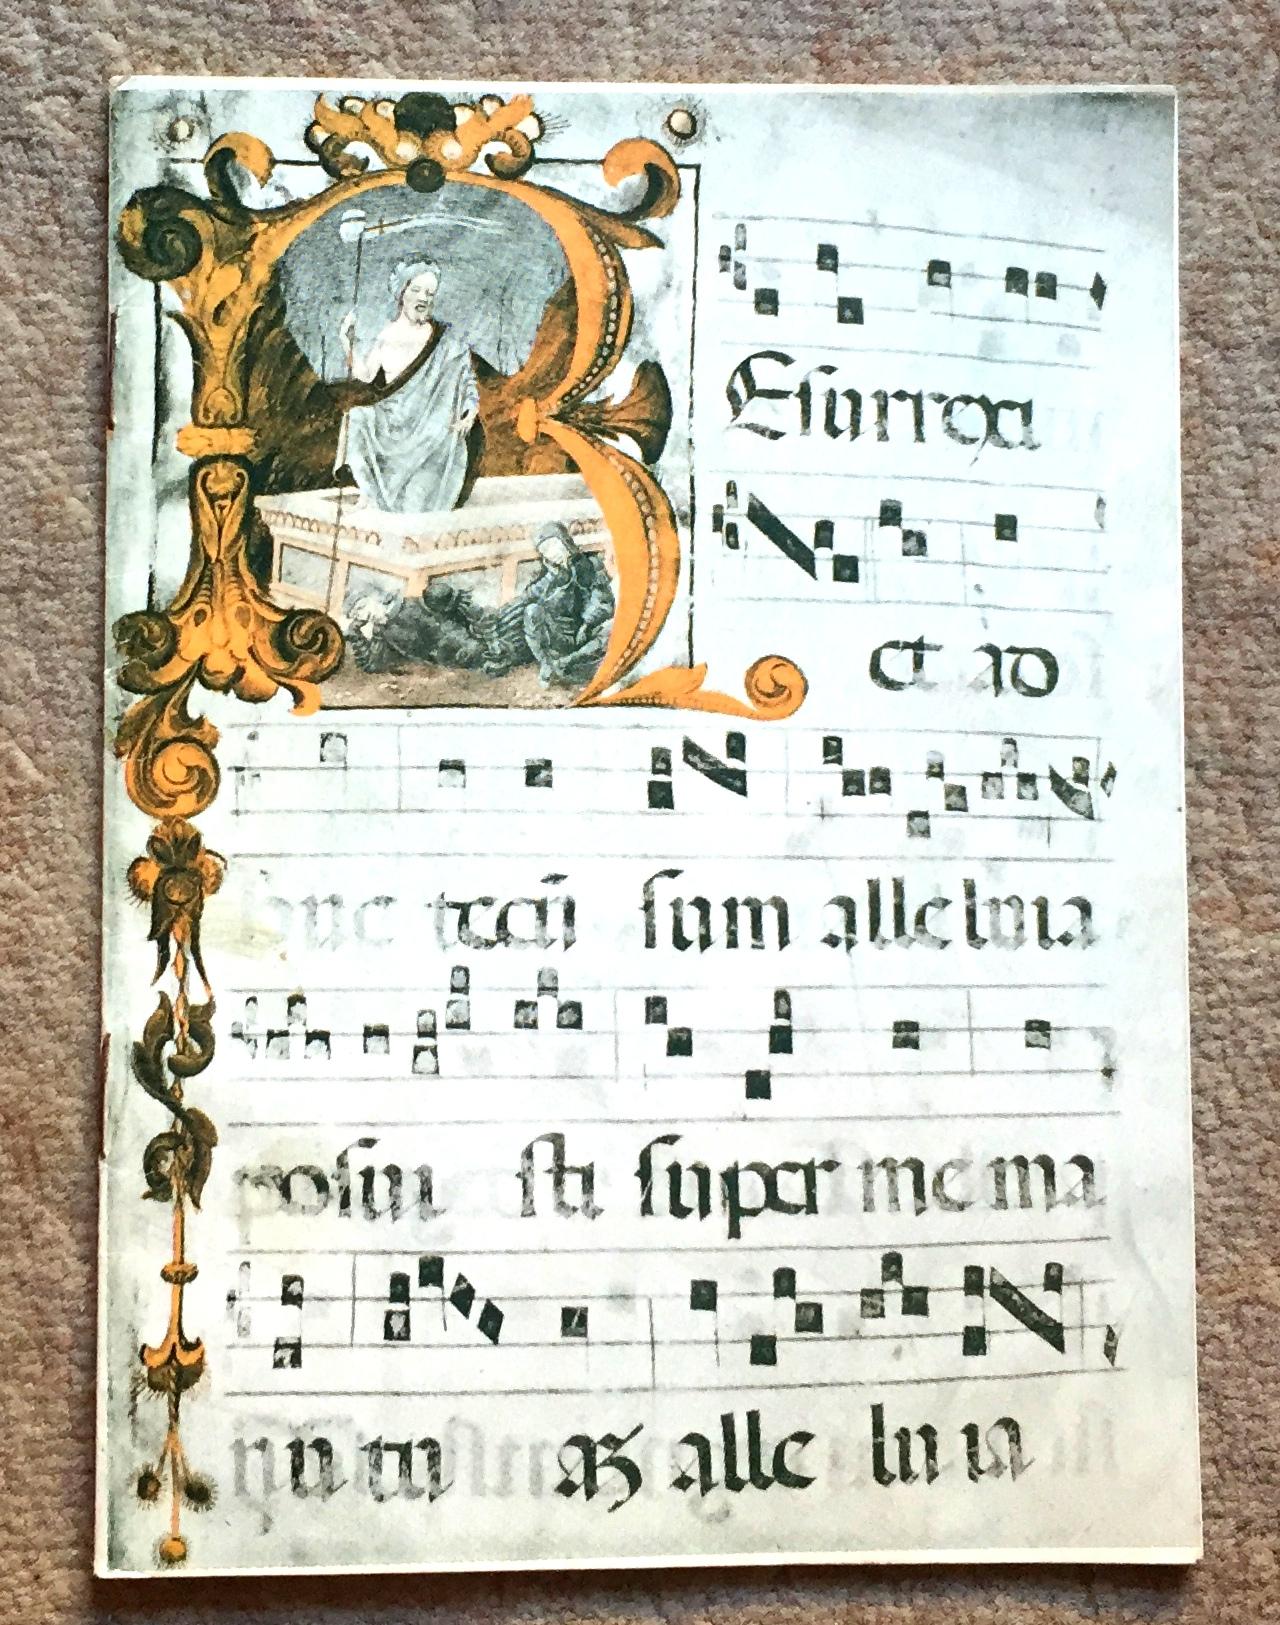 REsurrexi
et ad
huc tecū sum alleluia
posui sti super me ma
nū tu aȝ alle lu ia